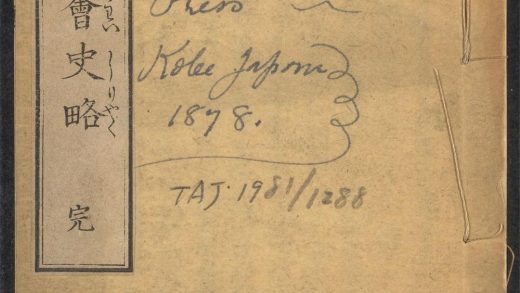 會史略 完
しりやく
Kobe Japan
1878.
TAJ・1981/1288